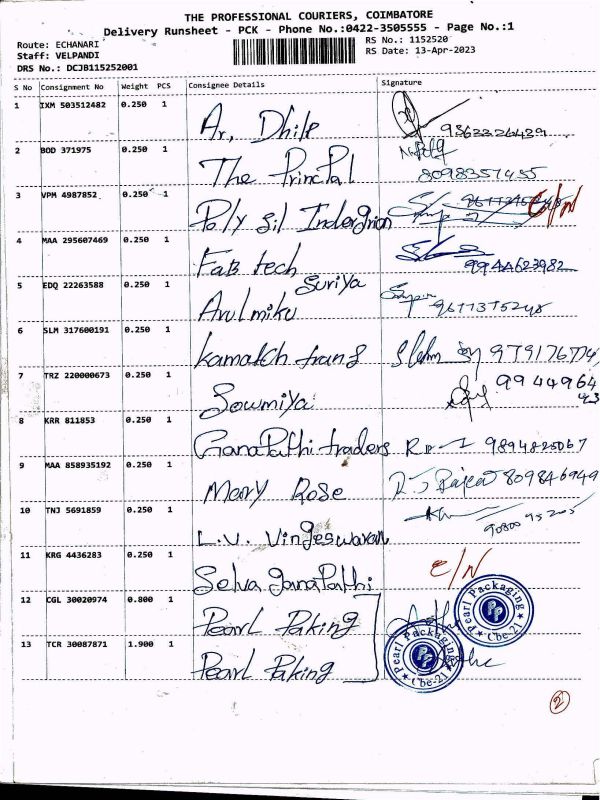 THE PROFESSIONAL COURIERS, COIMBATORE
Delivery Runsheet - PCK - Phone No.:0422-3505555 - Page No.:1
Route: ECHANARI
RS No.: 1152520
Staff: VELPANDI
RS Date: 13-Apr-2023
DRS No.: DCJB115252001
S No Consignment No Weight PCS Consignee Details Signature
1 IXM 503512482 0.250 1 Ar, Dhilp
2 BOD 371975 0.250 1 The PrincPal 8098357455
3 VPM 4987852 0.250 1 Poly Sil Indergrion E/N
4 MAA 295607469 0.250 1 Fab tech 9944623982
5 EDQ 22263588 0.250 1 Arulmiku Suriya 9611375248
6 SLM 317600191 0.250 1 kamatch trans
7 TRZ 220000673 0.250 1 Sowmiya 9944964
8 KRR 811853 0.250 1 GanaPathi traders 9894825067
9 MAA 858935192 0.250 1 Mary Rose 809846949
10 TNJ 5691859 0.250 1 L.V. Vingeswaran
11 KRG 4436283 0.250 1 Selva ganaPathi E/N
12 CGL 30020974 0.800 1 Pearl Paking
Pearl Packaging PP Cbe-21
13 TCR 30087871 1.900 1 Pearl Paking
Pearl Packaging PP Cbe-21
2